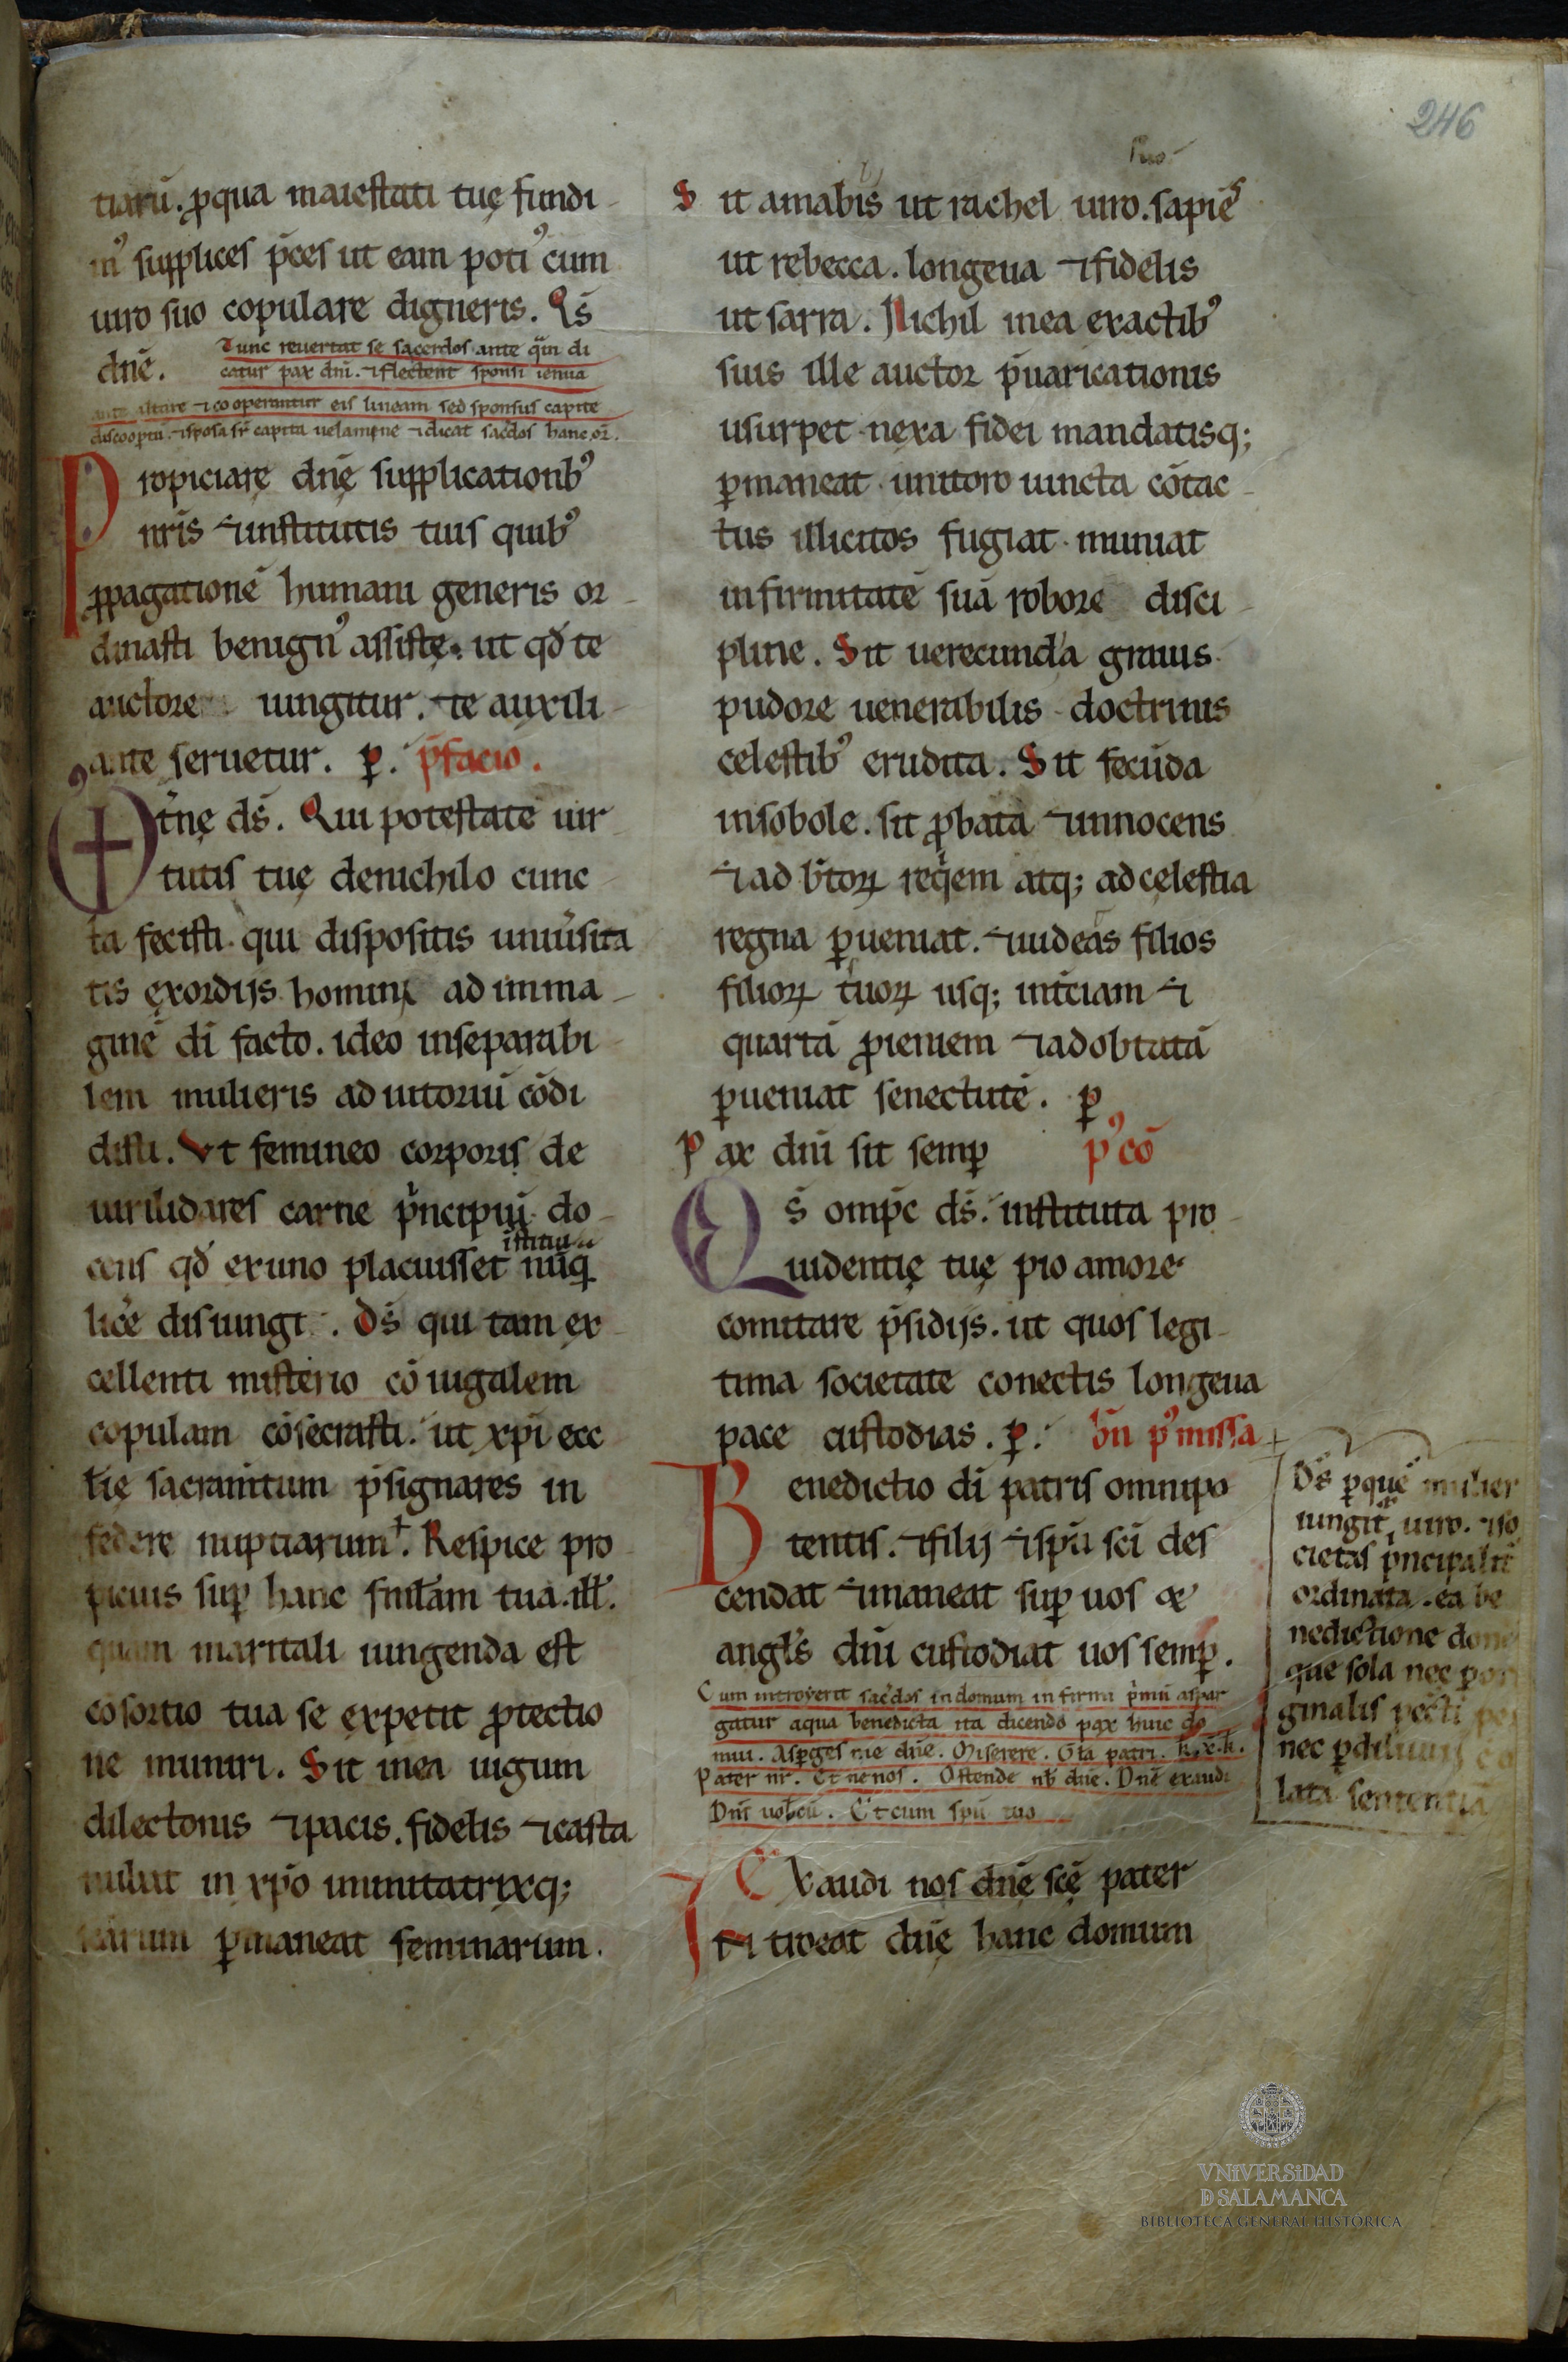 246
tiarū. ꝓqua maiestati tuę fundi
mꝰ supplices p̄ces ut eam potiꝰ cum
uiro suo copulare digneris. Qs̄
dn̄e. Tunc reuertat se sacerdos ante q̄m di
catur pax dn̄i. ⁊flectent sponsi ienua
ante altare ⁊cooperiantur eis lineam sed sponsus capite
discooptū. ⁊sposa sr̄ capita uelamine ⁊dicat sac̄dos hanc or̄.
Propiciare dn̄ę supplicationibꝰ
nr̄is ⁊institutis tuis quibꝰ
ꝓpagationē humani generis or
dinasti benignꝰ assistę. ut qd̄ te
auctore iungitur. te auxili
ante seruetur. ꝑ. p̄facio.
Ot̄nę ds̄. Qui potestate uir
tutis tuę denichilo cunc
ta fecisti. qui dispositis uniūsita
tis exordijs homini ad imma
ginē di facto. ideo inseparabi
lem mulieris adiutoriū cōdi
disti. Ut femineo corporis de
uirilidares carne p̄ncipiū do
cens qd̄ exuno placuisset istitui nūq̄
licē disiungi. Ds̄ qui tam ex
cellenti misterio cōiugalem
copulam cōsecrasti. ut xp̄i ecc
l̄ię sacram̄tum p̄signares in
federe nuptiarum. Respice pro
picius suꝑ hanc fml̄am tua. ill̄.
quam maritali iungenda est
cōsortio tua se expetit ꝓtectio
ne muniri. Sit inea iugum
dilectonis ⁊pacis. fidelis ⁊casta
nubat in xp̄o imitatrixq;
ꝑmaneat feminarum.
Sit amabis ut rachel uiro. suo sapiēs
ut rebecca. longeua ⁊fidelis
ut sarra. Nichil inea exactibꝰ
suis ille auctor p̄uaricationis
usurpet. nexa fidei mandatisq;
ꝑmaneat. unitoro iuncta cōtac
tus illicitos fugiat. muniat
infirmitatē suā robore disci
pline. Sit uerecunda grauis.
pudore uenerabilis. doctrinis
celestibꝰ erudita. Sit fecūda
insobole. sit ꝓbata ⁊innocens
⁊ad b̄toꝝ reqiem atq; adcęlestia
regna ꝑueniat. ⁊uideas filios
filioꝝ tuoꝝ usq; int̄ciam ⁊
quartā ꝓieniem ⁊adobtatā
ꝑueniat senectutē. ꝑ
Pax dn̄i sit semꝑ pꝰcō
Qs̄ omp̄c ds̄. instituta pro
uidentię tuę pio amore
comitare p̄sidijs. ut quos legi
tima societate conectis longeua
pace custodias. ꝑ. bn̄ pꝰ missa
Benedictio di patris omnipo
tentis. ⁊filij ⁊spū sci des
cendat ⁊maneat suꝑ uos ⁊
angl̄s dn̄i custodiat uos semꝑ.
Cum introyerit sac̄dos indomum infirmi p̄mū aspar
gatur aqua benedicta ita dicendo pax huic do
mui. Asꝑges me dn̄e. Miserere. Gl̄a patri. k. x. k.
Pater nr̄. Et nenos. Ostende nb̄ dn̄e. Dn̄e exaudi
Dn̄s uob̄cū. Et cum spū tuo
Exaudi nos dn̄ę scę pater
Introeat dn̄ę hanc domum
Ds̄ ꝑquē mulier
iungit̄ uiro. ⁊so
cietas p̄ncipalit̄
ordinata. ea be
nedictione done
que sola nec ꝑori
ginalis peccti pe
nec ꝑdiluuij ē
lata sententia
VNiVERSiDAD
D SALAMANCA
BIBLIOTECA GENERAL HISTÓRICA